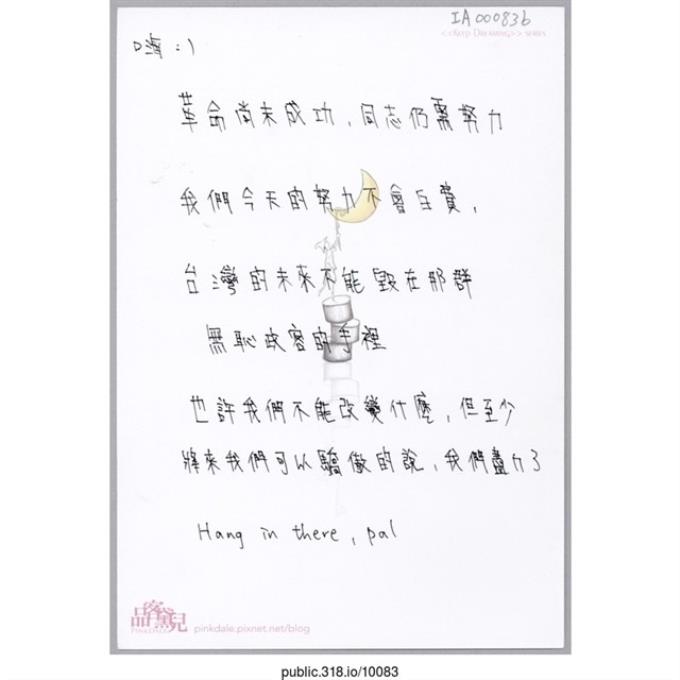 IA000836
<<Keep Dreaming>> series
嗨:)
革命尚未成功,同志仍需努力
我們今天的努力不會白費,
台灣的未來不能毀在那群
無恥政客的手裡
也許我們不能改變什麼,但至少
將來我們可以驕傲的說,我們盡力了
Hang in there, pal
品客黛兒
PINKDALE
pinkdale.pixnet.net/blog
public.318.io/10083